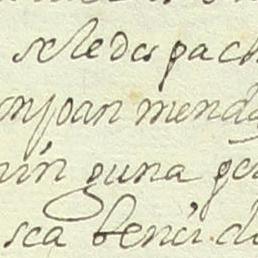 se le des pach
mpan menda
nin guna per
sea benci do